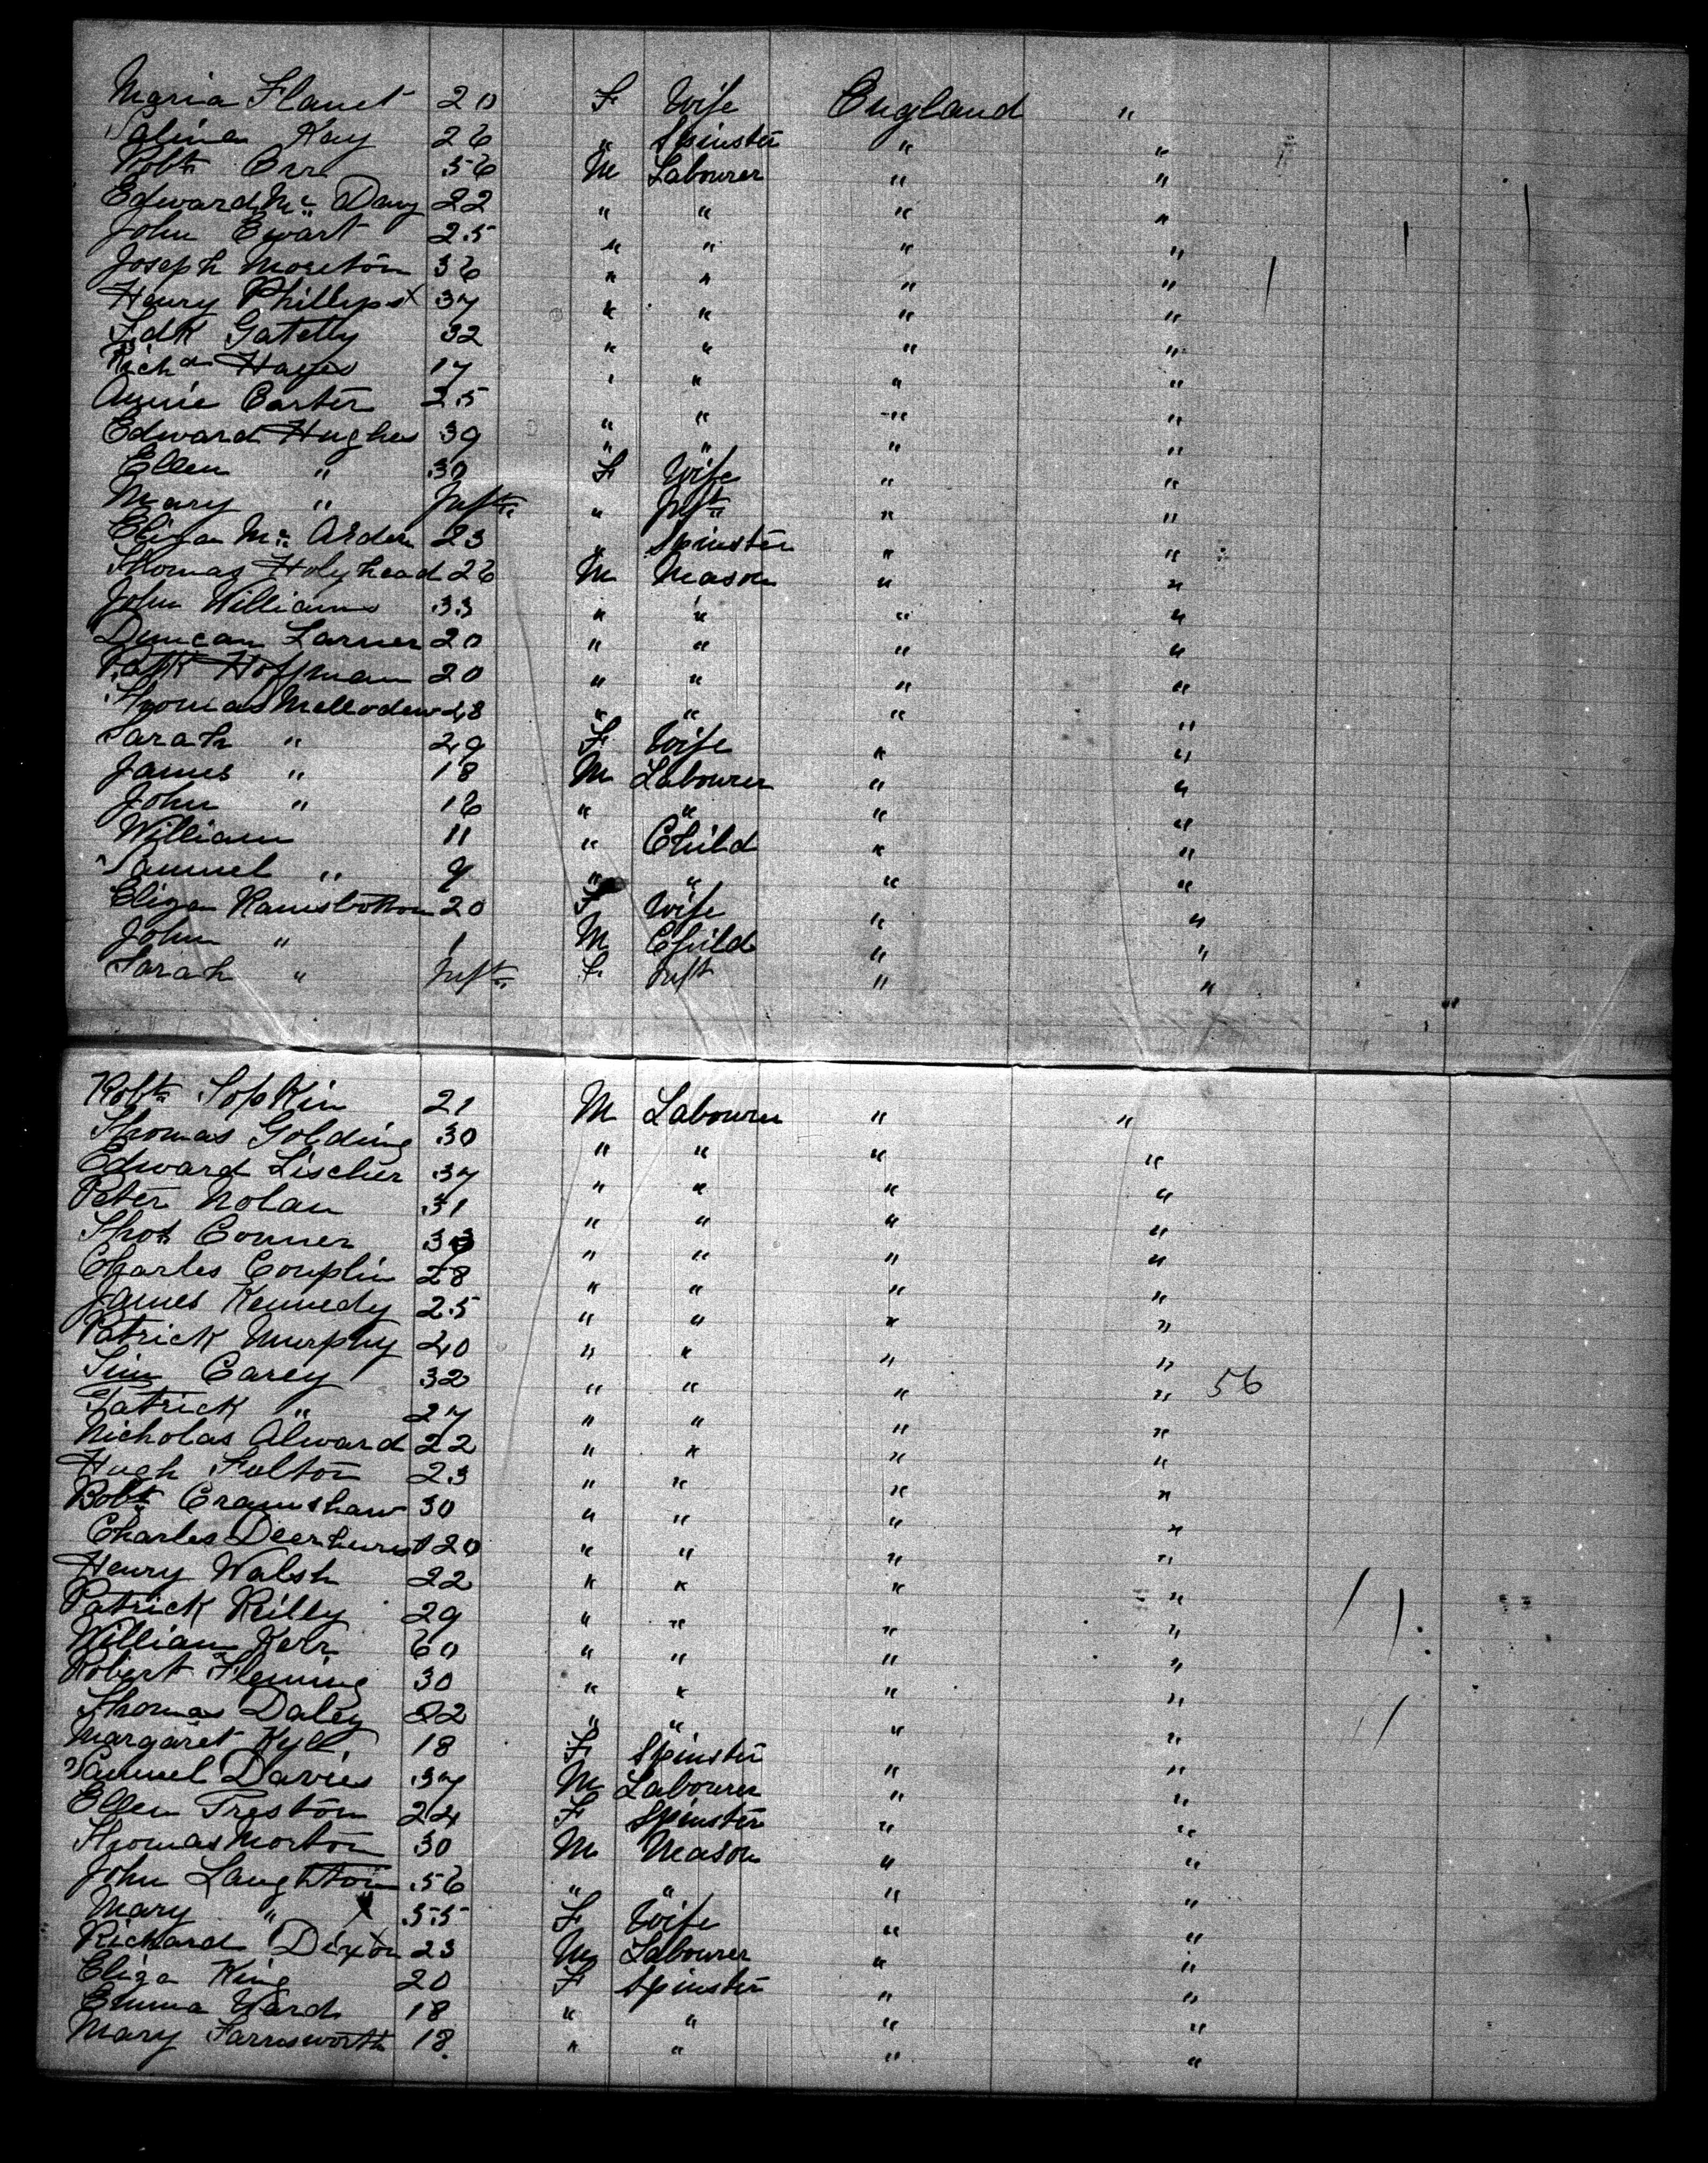 Maria Flanet 20 F Wife England "
Salina Kay 26 " Spinster " "
Robt. Orr 56 M Labourer " "
Edward Mc Davy 22 " " " "
John Ewart 25 " " " "
Joseph Moreton 36 " " " "
Henry Phillips x 37 " " " "
Fdk Gatelly 32 " " " "
Richd Hayes 17 " " " "
Annie Carter 25 " " " "
Edward Hughes 39 " " " "
Ellen " 30 F Wife " "
Mary " Inft. " Inft. " "
Eliza Mc Arden 23 " Spinster " "
Thomas Holyhead 26 M Mason " "
John Williams 33 " " " "
Duncan Larner 20 " " " "
Patk Hoffman 20 " " " "
Thomas Mellodew 48 " " " "
Sarah " 49 F Wife " "
James " 18 M Labourer " "
John " 16 " " " "
William 11 " Child " "
Samuel " 9 " " " "
Eliza Ramsbottom 20 F Wife " "
John " 1 M Child " "
Sarah " Inft. F Inft " "
Robt. Sopkin 21 M Labourer " "
Thomas Golding 30 " " " "
Edward Lischer 37 " " " "
Peter Nolan 31 " " " "
Thos Conner " " " "
Charles Couplin 28 " " " "
James Kennedy 25 " " " "
Patrick Murphy 40 " " " "
Tim Carey 32 " " " " 56
Patrick " 27 " " " "
Nicholas Alward 22 " " " "
Hugh Fulton 23 " " " "
Robt. Cramshaw 30 " " " "
Charles Deerhurst 20 " " " "
Henry Walsh 22 " " " "
Patrick Reilly 29 " " " "
William Kerr 60 " " " "
Robert Fleming 30 " " " "
Thomas Daley 22 " " " "
Margaret Kyll 18 F Spinster " "
Samuel Davies 37 M Labourer " "
Ellen Preston 24 F Spinster " "
Thomas Morton 30 M Mason " "
John Laughton 56 " " " "
Mary " x 55 F Wife " "
Richard Dixon 23 M Labourer " "
Eliza King 20 F Spinster " "
Emma Ward 18 " " " "
Mary Farnsworth 18 " " " "